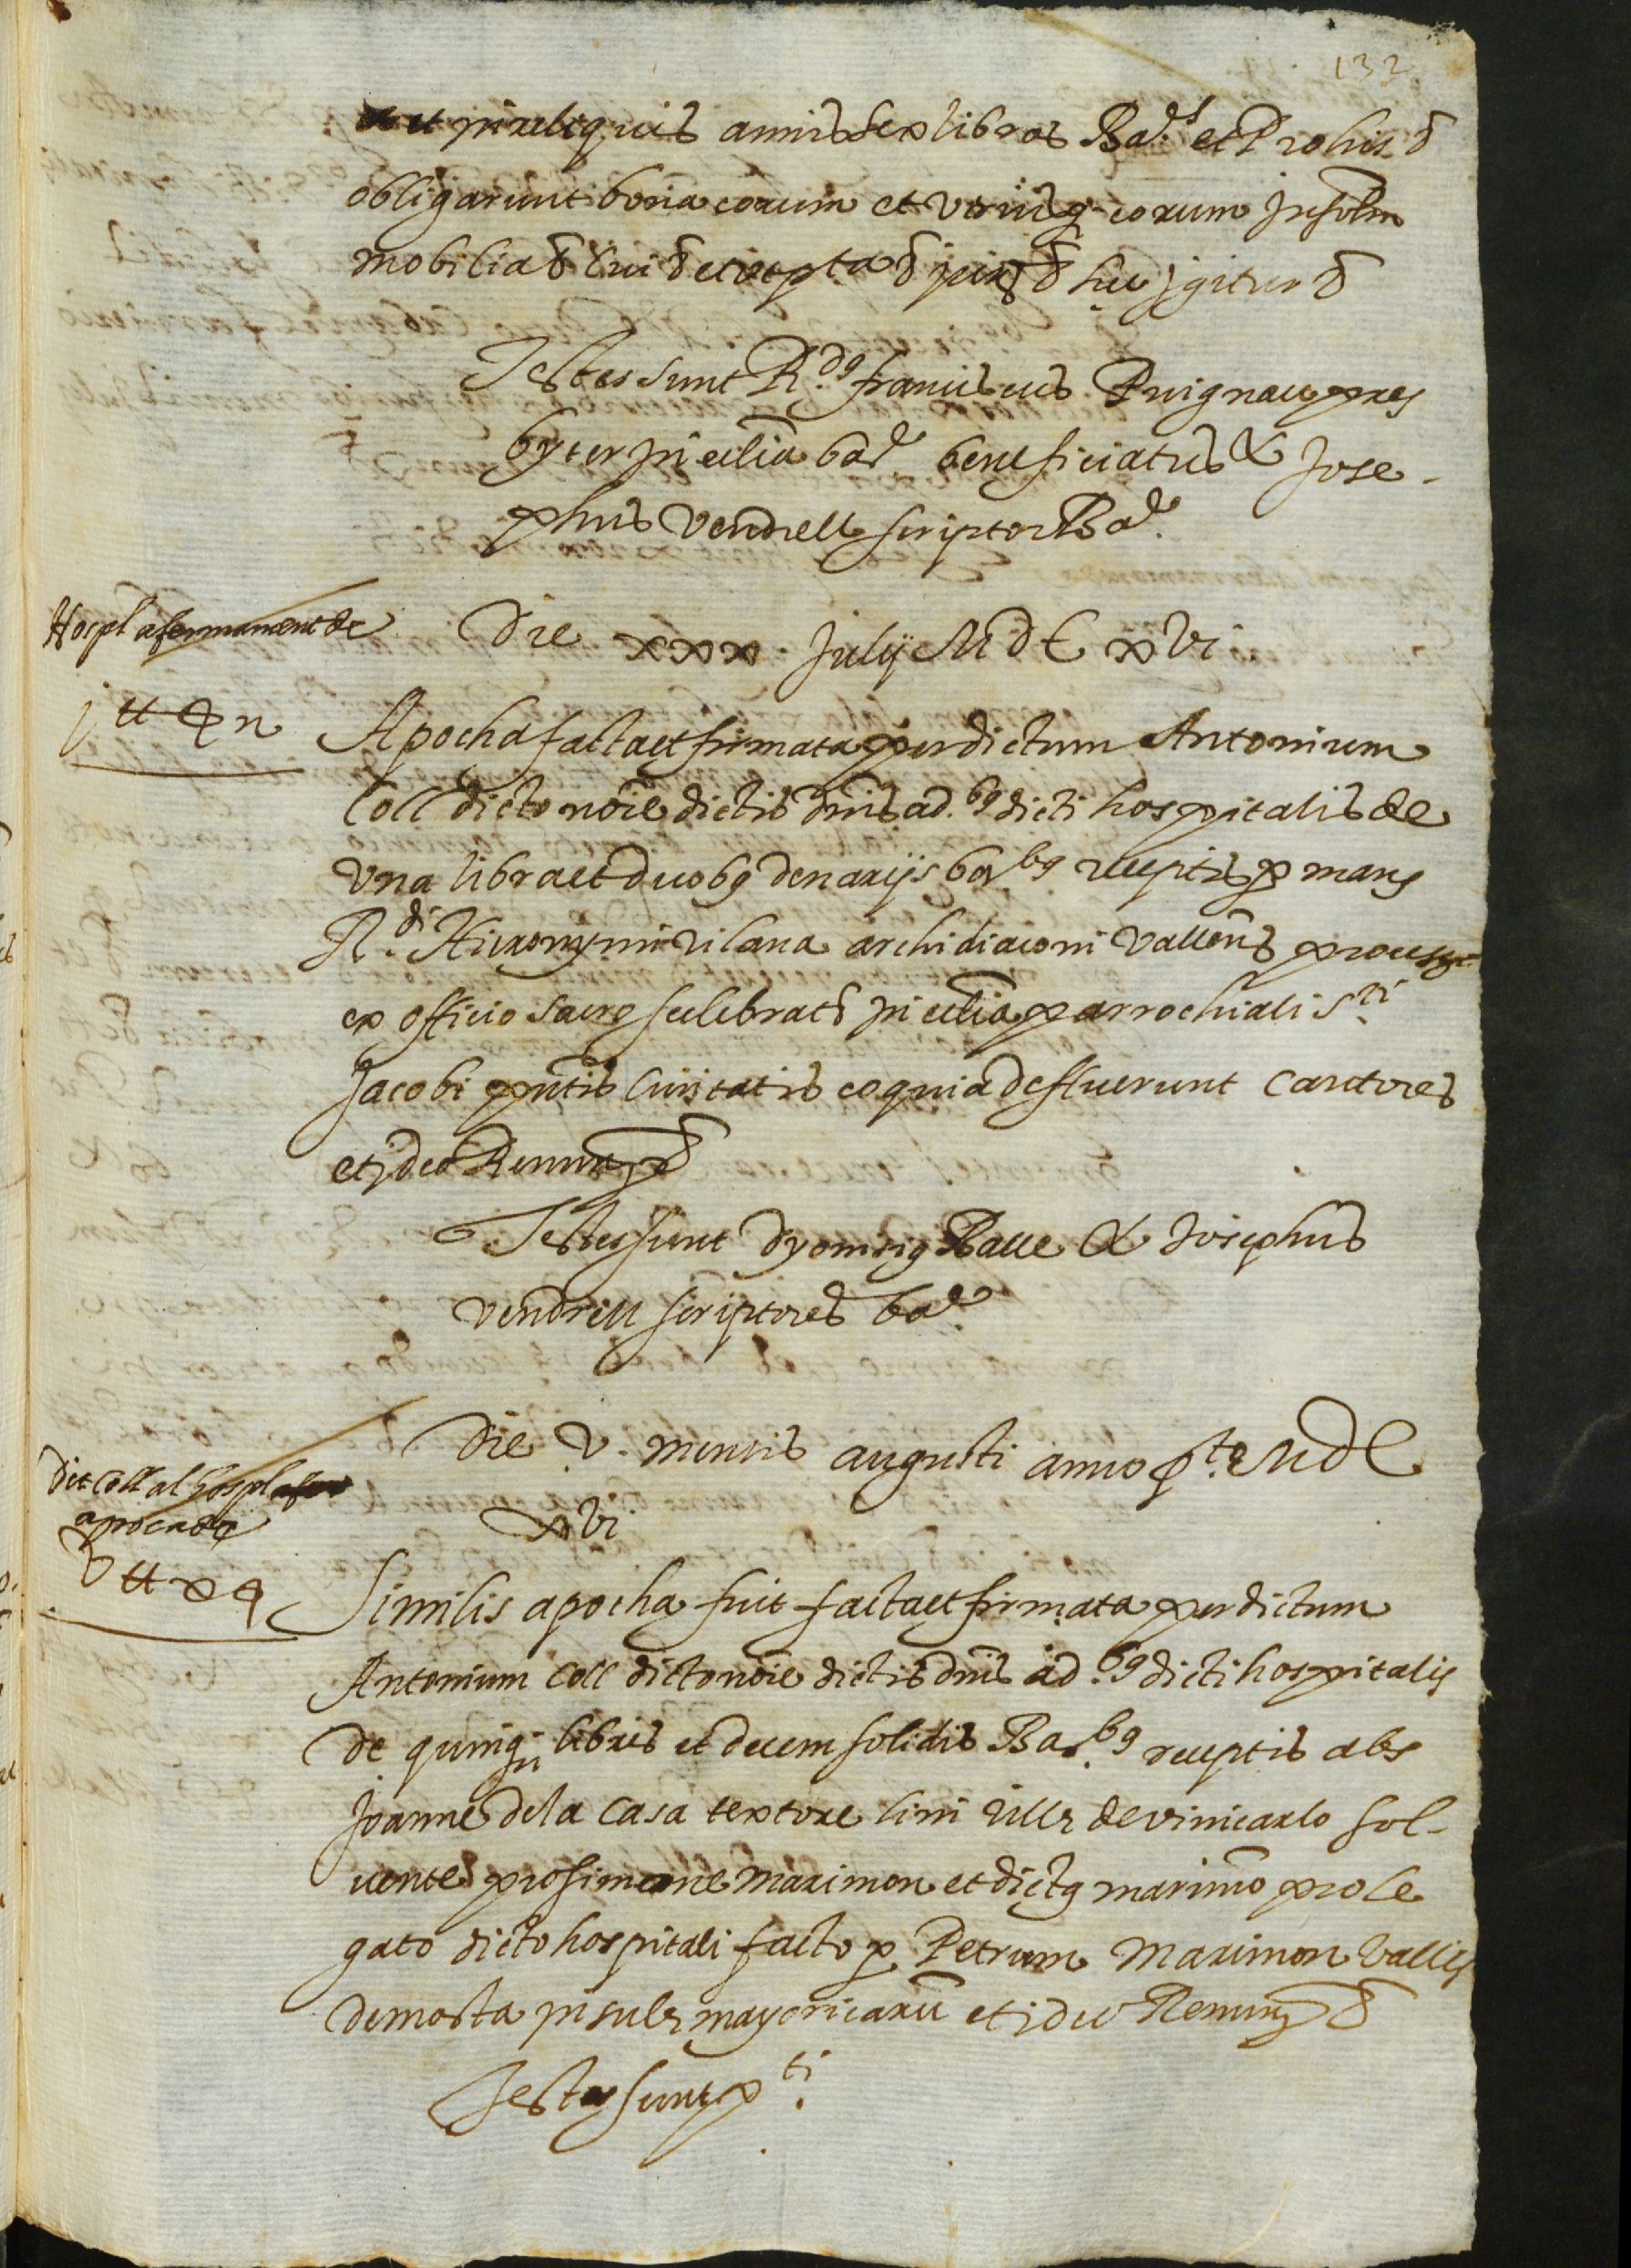 132
et in reliquis annis sex libras Bar. et Prohis &
obligarunt bona eorum et utriusq eorum insolm
mobilia & cui & excepta & juris & hec igitur &
Testes sunt R.dus franciscus Puignau pres
byter in ecclia bar. beneficiatus & Jose-
phus Vendrell scriptor Bar.
Hospl
Die xxx Julij MdC xvi
j ll ij
Apocha facta et firmata per dictum Antonium
Coll dicto noie dictis dnis ad.bus dicti hospitalis de
una libra et duobus denarijs bar.bus receptis p manus
R.di Hieronymi vilana archidiaconi Vallens
ex officio sacre celebrat in ecclia parrochiali s.ti
Jacobi pntis Civitatis eo quia defuerunt cantores
et ideo Renun &
Testes sunt dyonisius Balle & Josephus
Vendrell scriptores bar.
Dit Coll al hospl
apoca de
V ll x s
Die v. mensis augusti anno p.to MdC
xvi
Similis apocha fuit facta et firmata per dictum
Antonium Coll dicto noie dictis dnis ad.bus dicti hospitalis
de quinq libris et decem solidis Bar.bus receptis abs
Joanne dela Casa textore lini ville de vinicarlo sol-
vente pro simeone maximon et dictus marimo pro le
gato dicto hospitali facto p Petrum Maximon Vallis
demosta insule mayoricaru et ideo Renun &
Testes sunt p.ti